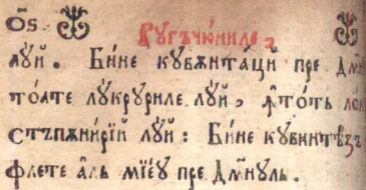 Ругъчю́ниле,
лꙋ́й. Бі́не кꙋвѫнта́ци пре дм҃н
то́ате лꙋ́крꙋриле лꙋ́й, ꙟ҆то́ть ло́к
стъпѫни́рїй лꙋ́й: Бі́не кꙋвинтѣ́зъ
сꙋ́флете а҆́ль мїе́ꙋ пре дм҃нꙋль.